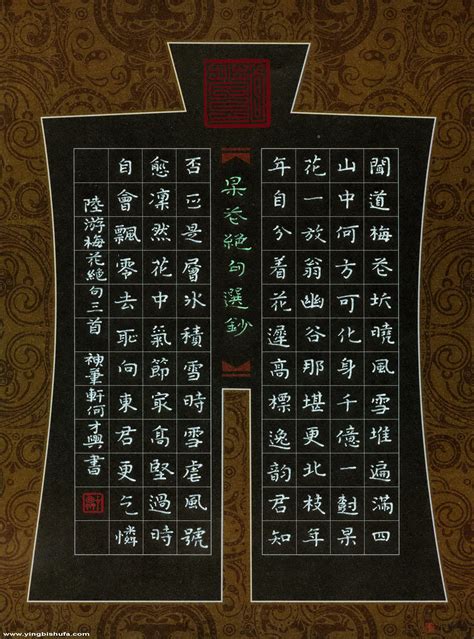 聞道梅苍坼曉風雪堆遍滿四
山中何方可化身千億一尌呆
花一放翁幽谷那堪更北枝年
年自分着花遲高標逸韵君知
呆苍絕句選鈔
否正是層冰積雪時雪虐風號
愈凜然花中氣節冣高堅過時
自會飄零去恥向東君更乞憐
陸游梅花絕句三首 神筆軒何才興書
www.yingbishufa.com